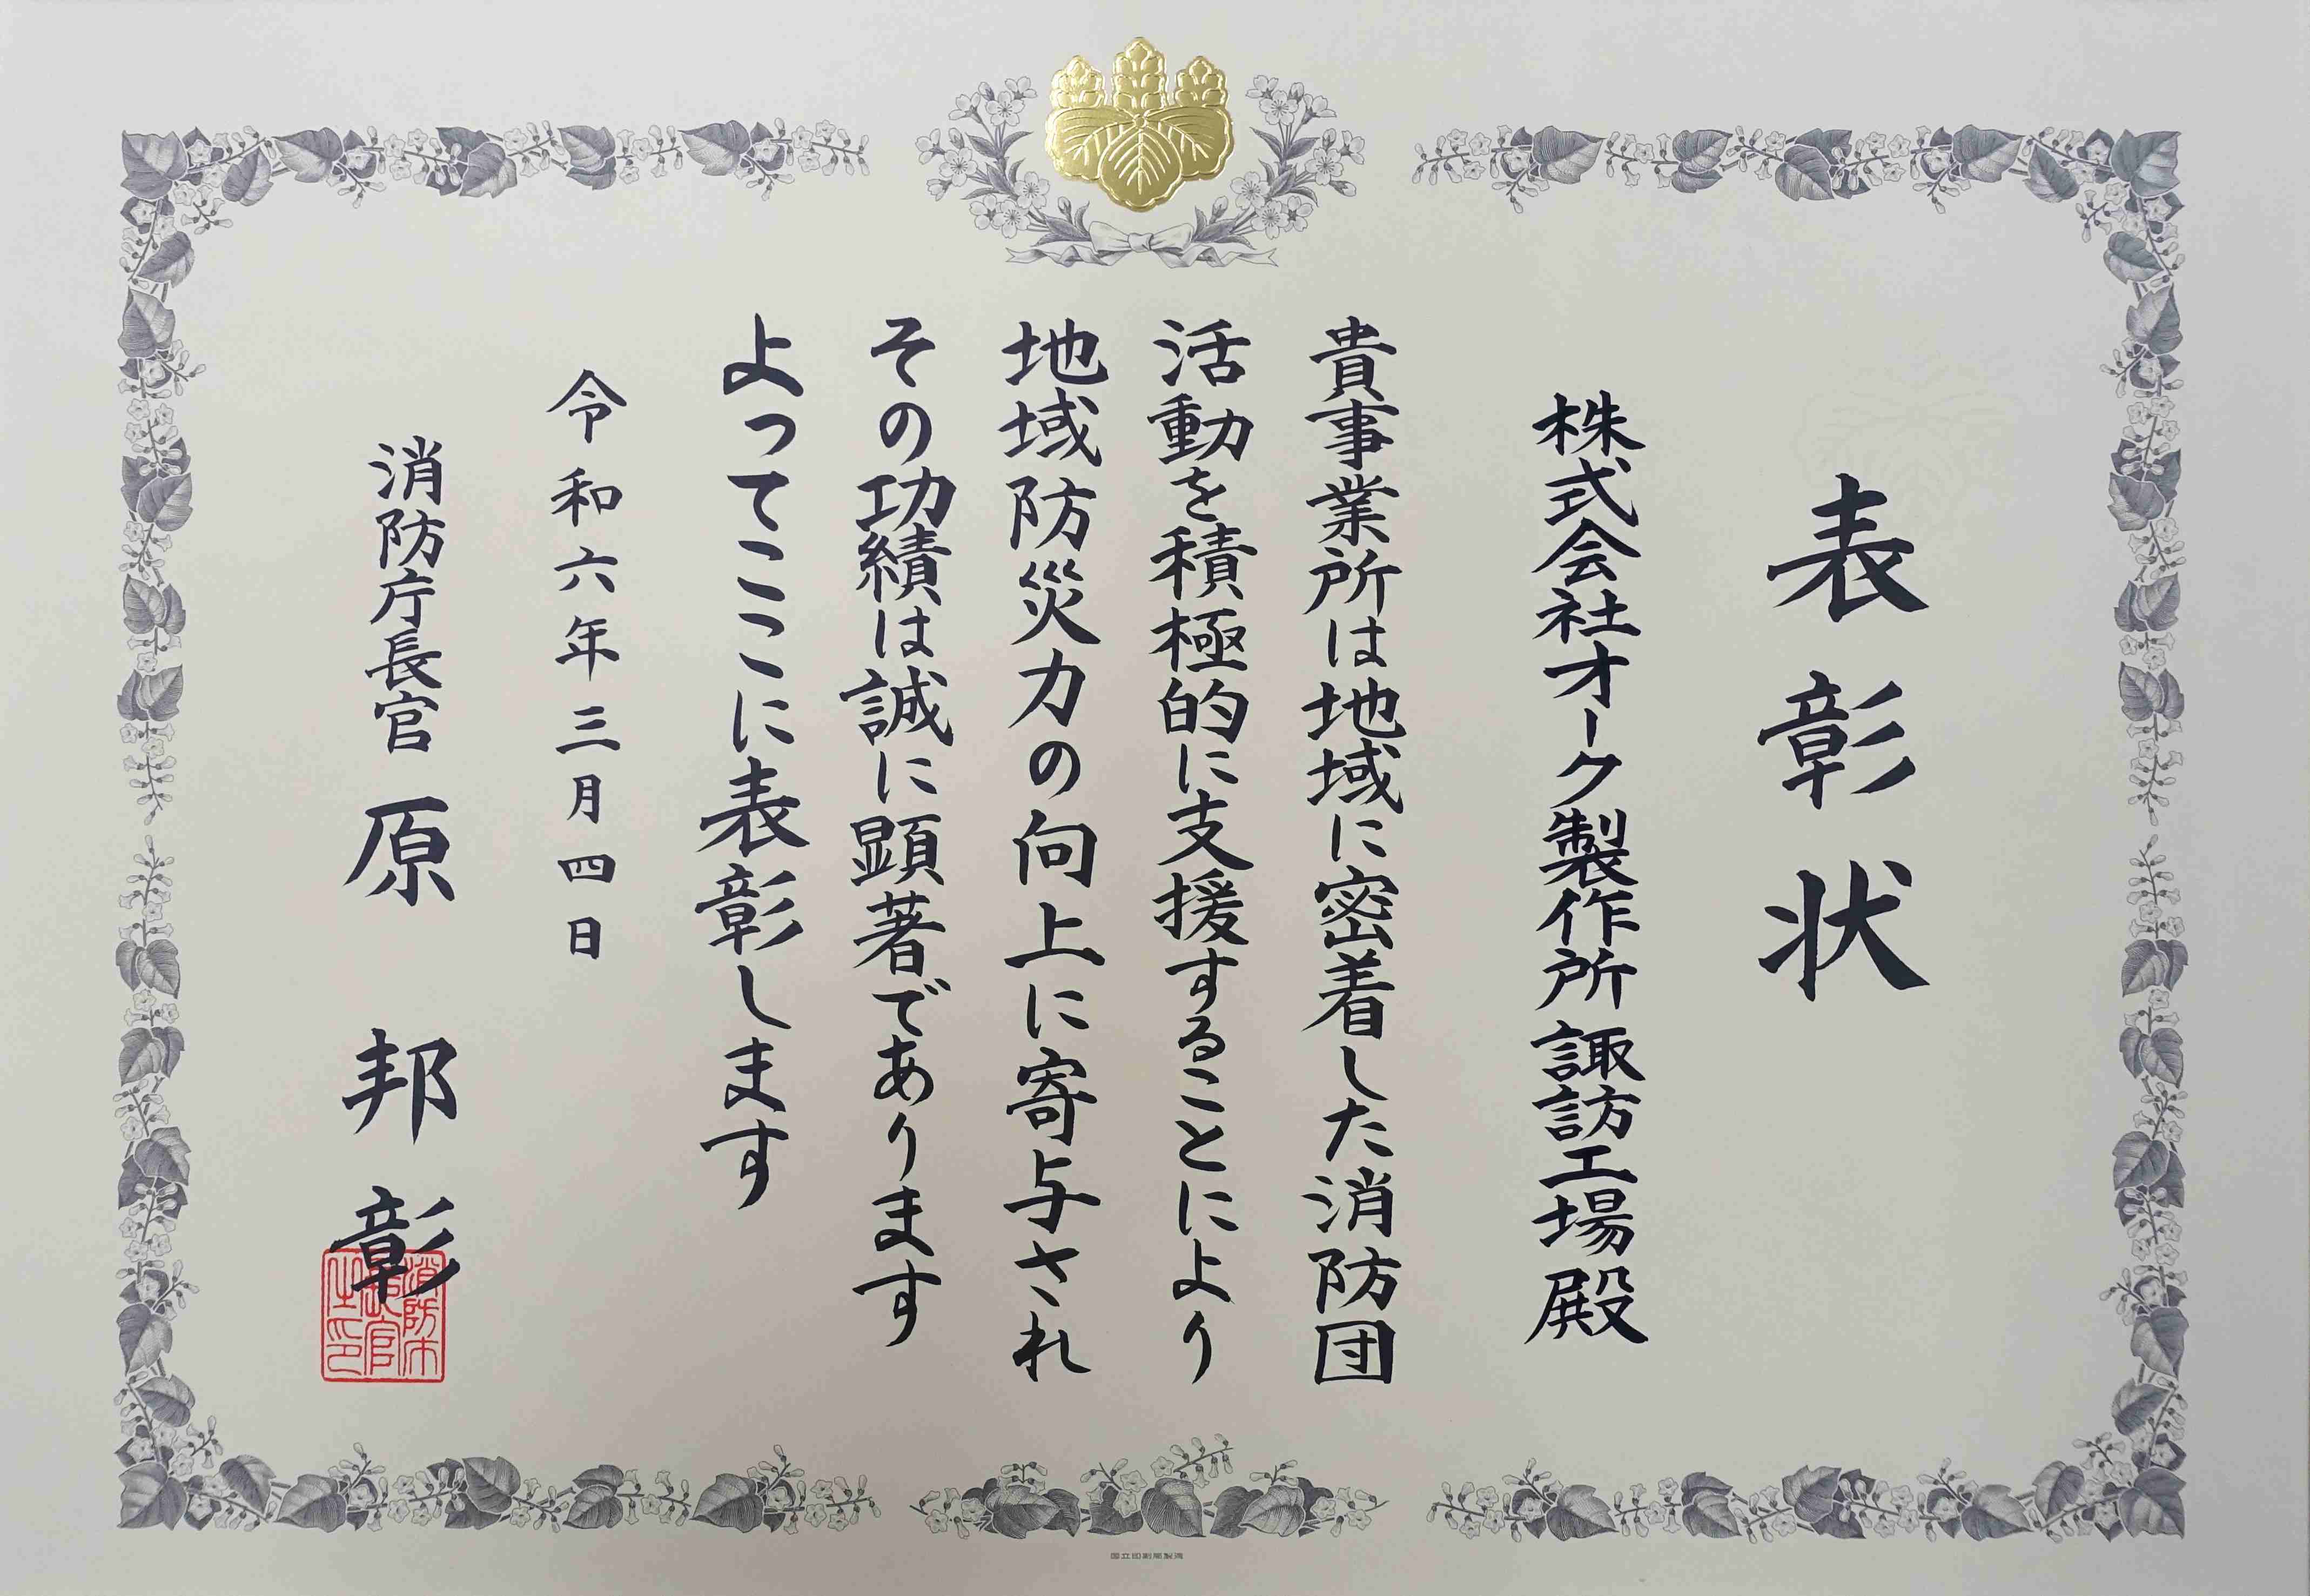 表彰状
株式会社オーク製作所 諏訪工場 殿
貴事業所は地域に密着した消防団
活動を積極的に支援することにより
地域防災力の向上に寄与され
その功績は誠に顕著であります
よってここに表彰します
令和六年三月四日
消防庁長官 原 邦彰
国立印刷局製造